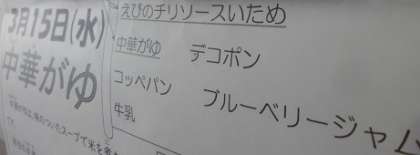 3月15日(水)
中華がゆ
えびのチリソースいため
中華がゆ デコポン
コッペパン ブルーベリージャム
牛乳
スープで米を